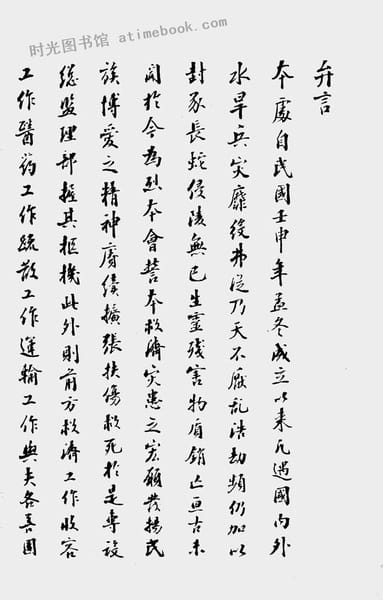 时光图书馆 atimebook.com
弁言
本處自民國壬申年孟冬成立以来凡遇國内外
水旱兵災靡役弗從乃天不厭乱浩劫頻仍加以
封豕長蛇侵陵無已生靈残害物盾銷亡亘古未
聞於今為烈本會誓本救濟災患之宏願發揚民
族博愛之精神賡续擴張扶傷救死於是專設
總监理部握其樞機此外則前方救濟工作收容
工作醫药工作疏散工作運輸工作與夫各善團